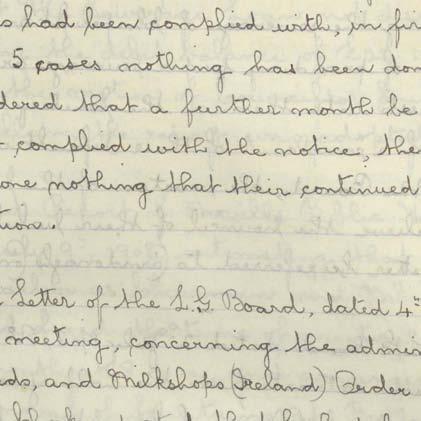 s had been complied with, in fir
5 cases nothing has been don
dered that a further month be
complied with the notice, the
one nothing that their continued
tion.
Letter of the L.G. Board, dated 4th
meeting, concerning the admin
ds, and Milkshops (Ireland) Order